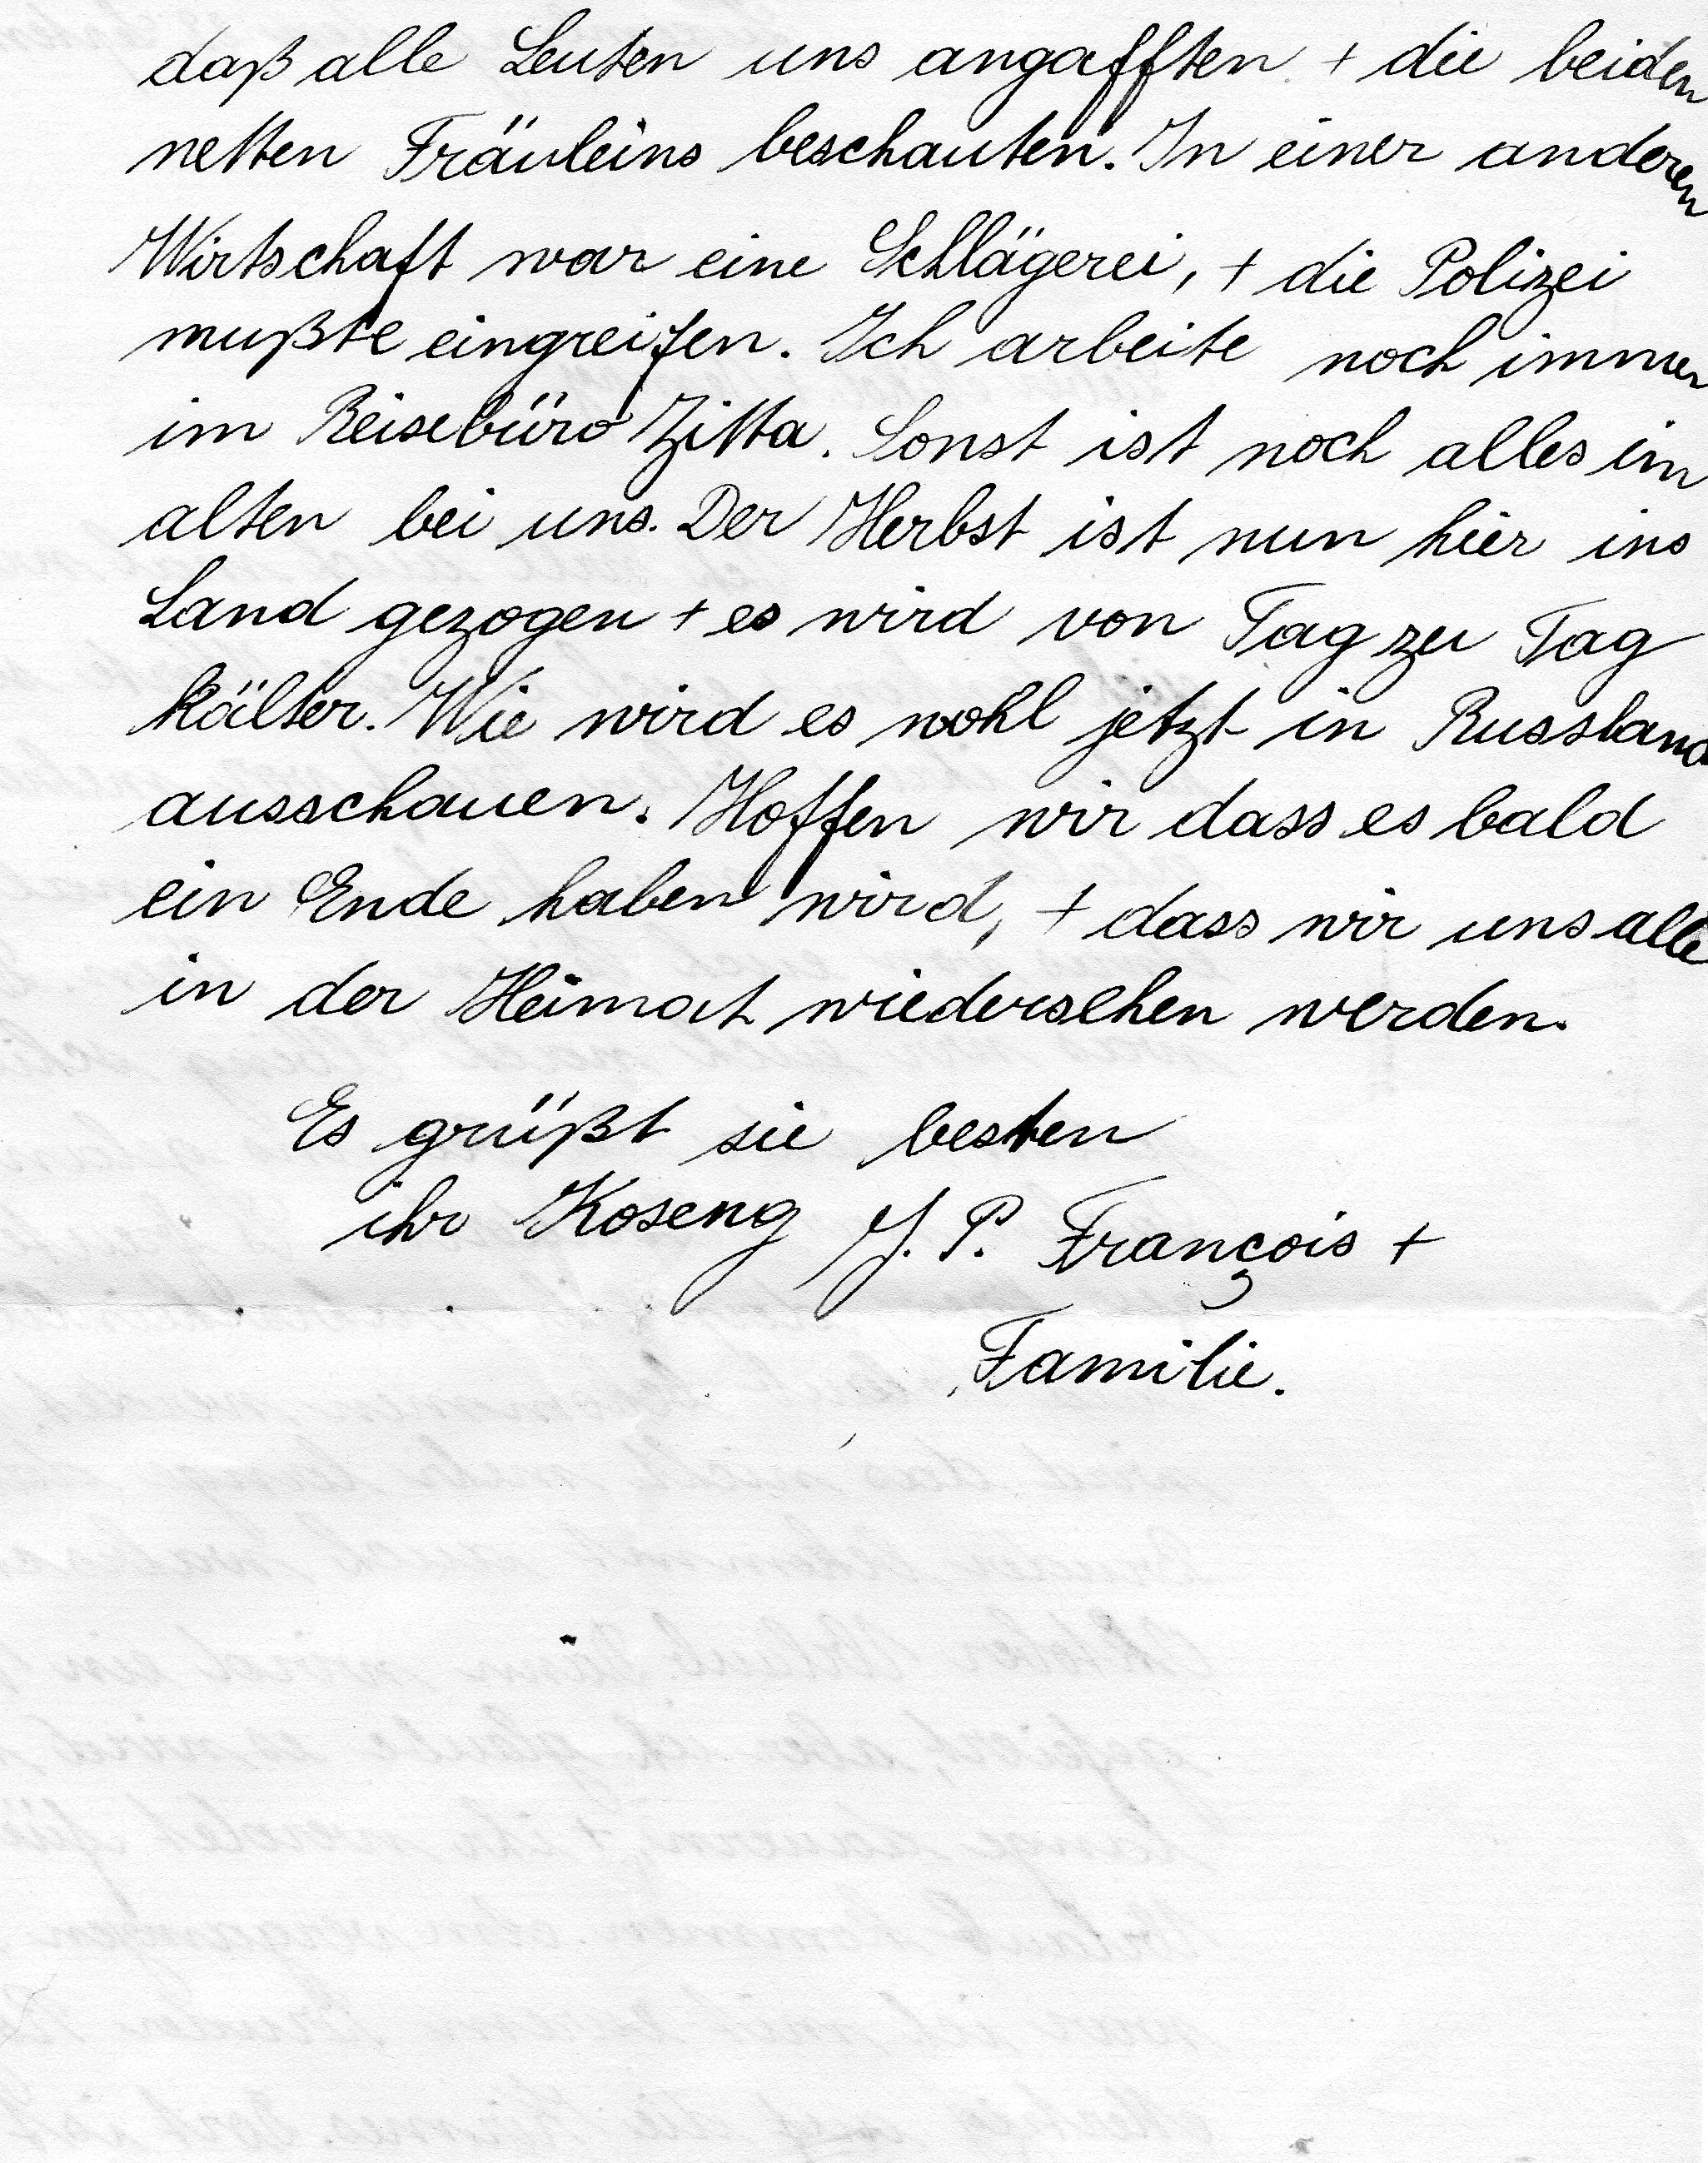 daß alle Leuten uns angafften + die beiden
netten Fräuleins beschauten. In einer anderen
Wirtschaft war eine Schlägerei, + die Polizei
mußte eingreifen. Ich arbeite noch immer
im Reisebüro Zitta. Sonst ist noch alles im
alten bei uns. Der Herbst ist nun hier ins
Land gezogen + es wird von Tag zu Tag
kälter. Wie wird es wohl jetzt in Russland
ausschauen. Hoffen wir dass es bald
ein Ende haben wird, + dass wir uns alle
in der Heimat wiedersehen werden.
Es grüßt sie besten
ihr Koseng J. P. François +
Familie.